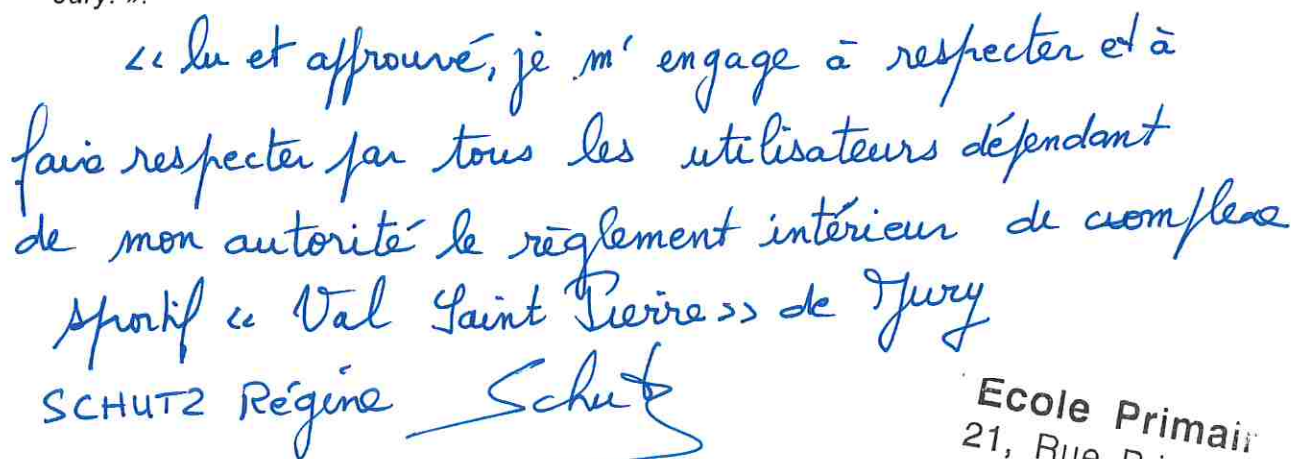 Jury. ».
« lu et approuvé, je m' engage à respecter et à
faire respecter par tous les utilisateurs dépendant
de mon autorité le règlement intérieur de complexe
sportif « Val Saint Pierre » de Jury
SCHUTZ Régine Schutz
Ecole Primair
21, Rue